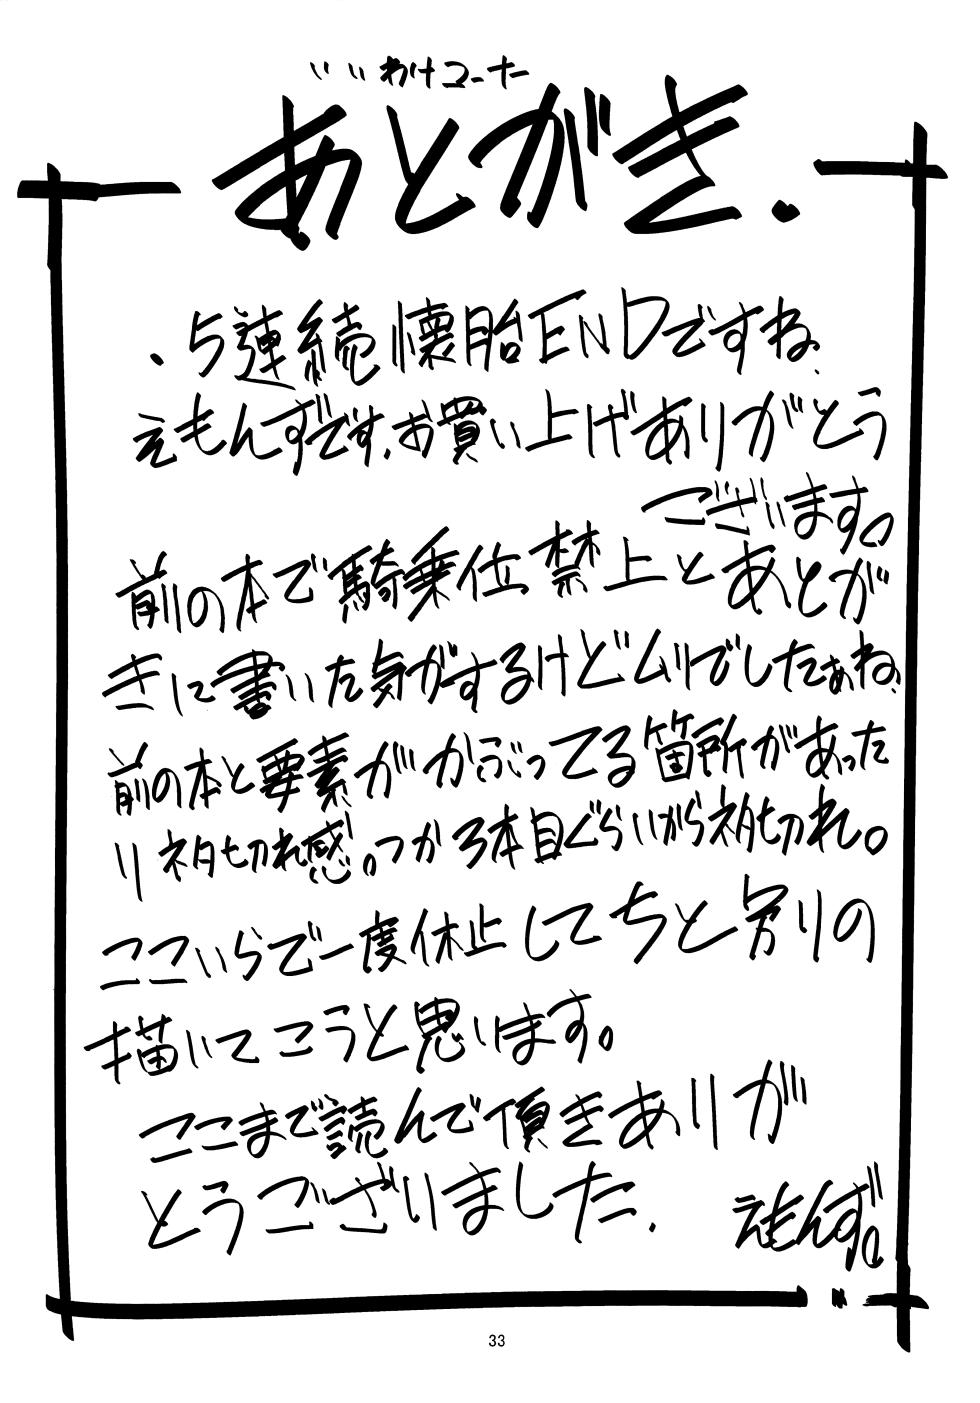 いいわけコーナー
あとがき.
、5連続懐胎ENDですね、
えもんずです、お買い上げありがとう
ございます。
前の本で騎乗位禁止とあとが
きに書いた気がするけどムリでしたぁね、
前の本と要素がかぶってる箇所があった
りネタ切れ感。つか3本目ぐらいからネタ切れ。
ここいらで一度休止してちと別りの
描いてこうと思います。
ここまで読んで頂きありが
とうございました.
えもんず。
33